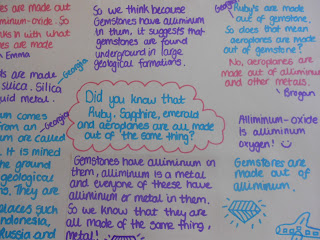 are made out
minium-oxide. So
ks in with what
es are made
Emma
ts are made
silica. Silica
uid metal.
Georgia
um comes
from an
um are called
. It is mined
the ground
geological
s. They are
places such
Indonesia,
Russia and
So we think because
Gemstones have alluminium
in them, it suggests that
gemstones are found
underground in large
geological formations.
Georgia
Did you know that
Ruby, Sapphire, emerald
and aeroplanes are all made
out of the same thing?
Georgia
Gemstones have alluminium on
them, alluminium is a metal
and everyone of theese have
alluminium or metal in them.
So we know that they are
all made of the same thing,
metal!
Georgia
Ruby's are made
out of gemstone.
So does that mean
aeroplanes are made
out of gemstone?
No, aeroplanes are
made out of alluminium
and other metals.
Brogan
Alliminum-oxide
is alluminium
oxygen!
Gemstones are
made out of
alluminium.